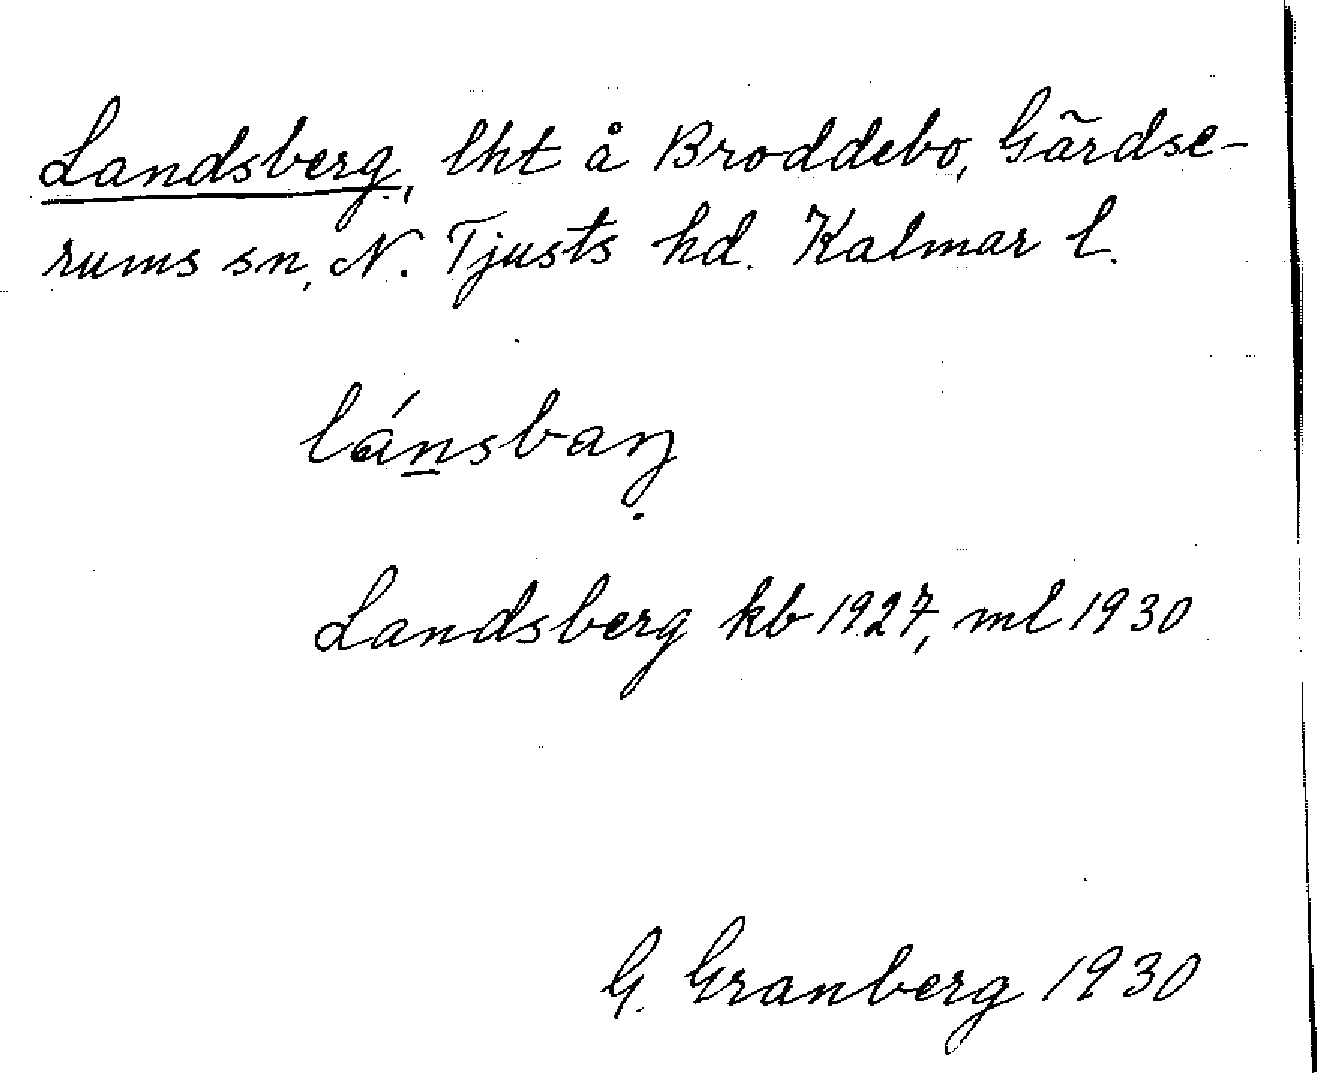 Landsberg, lht å Broddebo, Gärdse-
rums sn, N. Tjusts hd. Kalmar l.
lánsbaŋ
Landsberg kb 1927, ml 1930
G. Granberg 1930